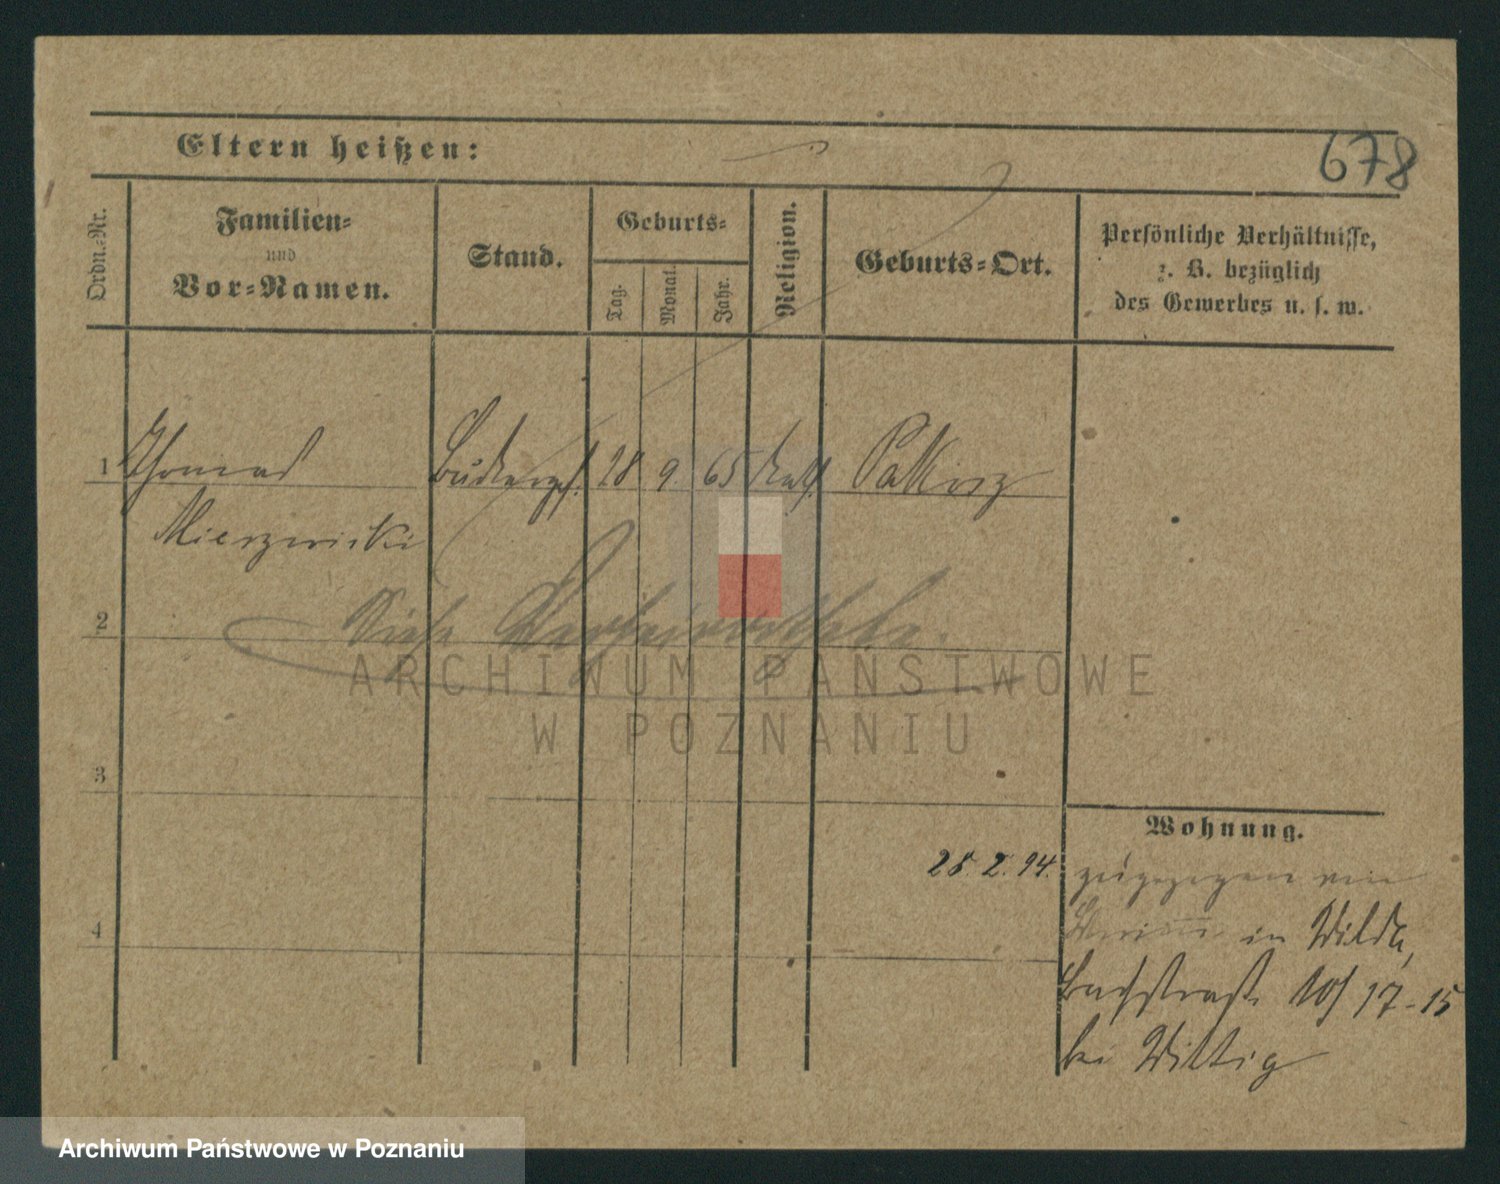 Eltern heißen:
678
Ordn.-Nr.
Familien-
und
Vor-Namen.
Stand.
Geburts-
Tag.
Monat.
Jahr.
Religion.
Geburts-Ort.
Persönliche Verhältnisse,
z. B. bezüglich
des Gewerbes u. s. w.
1 28 9 65 Kath. Pakosz
Mierzwicki
2 Siehe
ARCHIWUM PAŃSTWOWE
W POZNANIU
3
Wohnung.
28. 2. 94. zugezogen von
in Wilda,
Bachstraße 10/ 17-15
bei Wittig
4
Archiwum Państwowe w Poznaniu